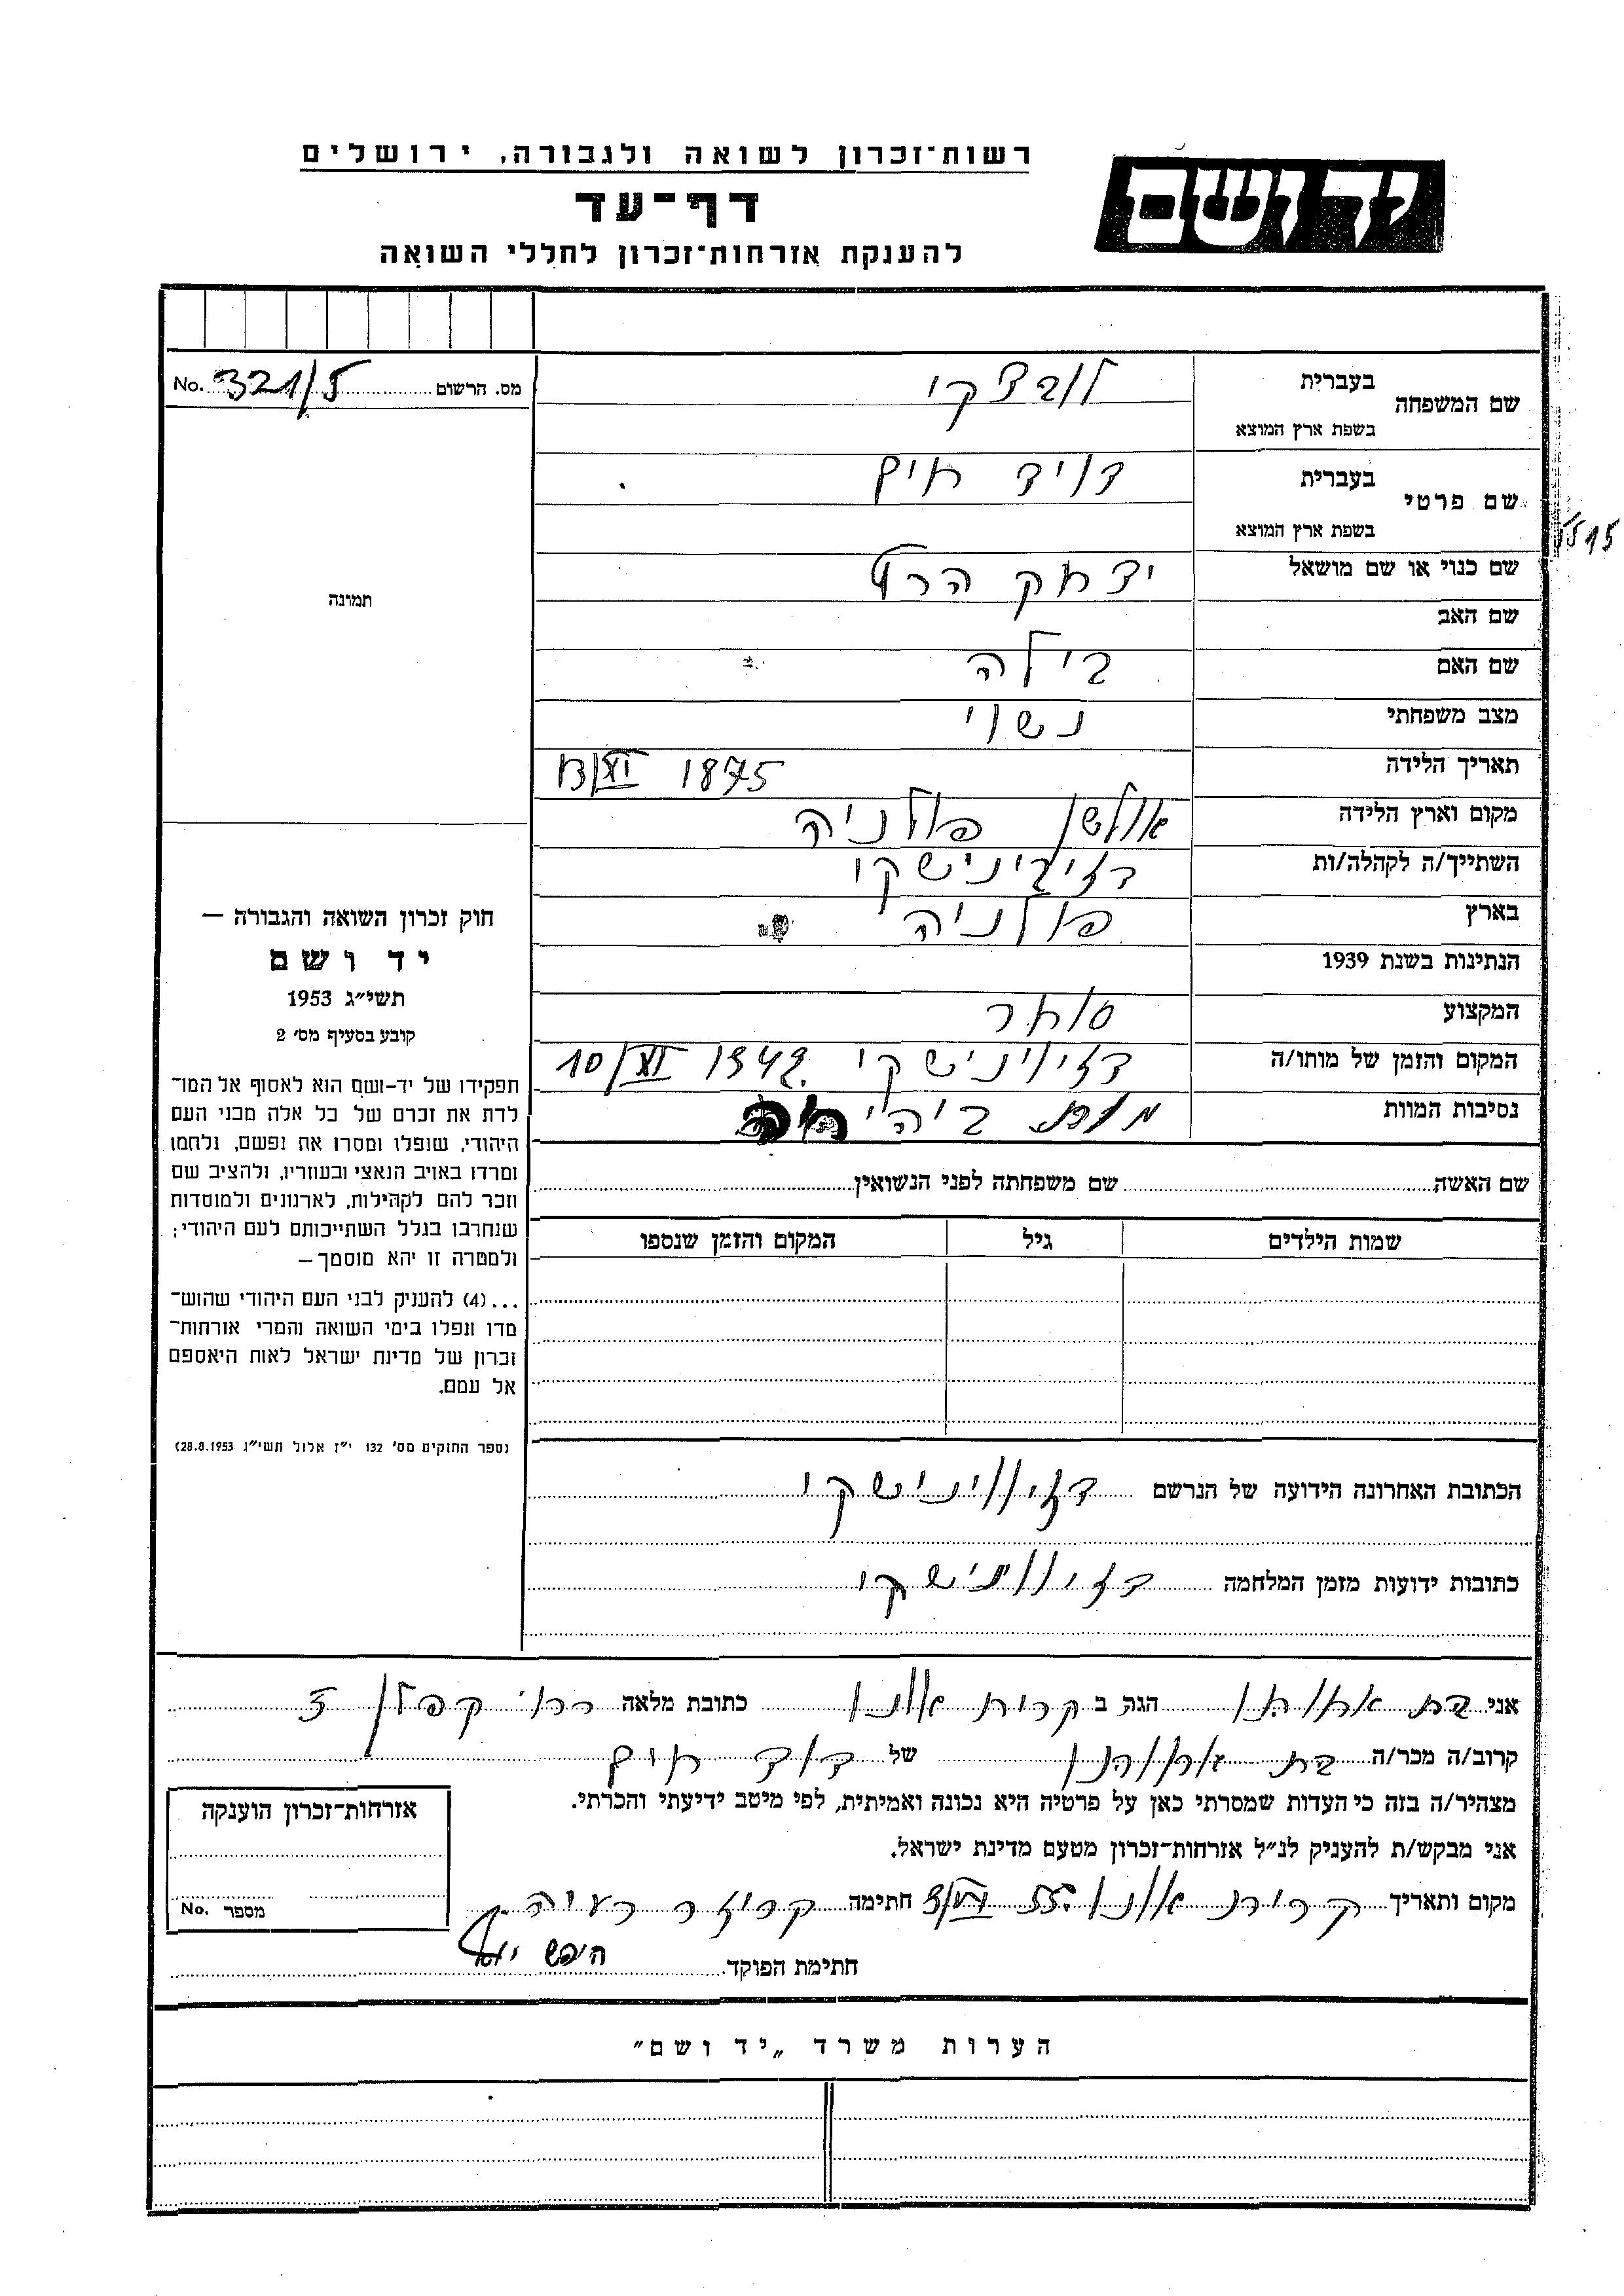 יד ושם
רשות־זכרון לשואה ולגבורה, ירושלים
דף־עד
להענקת אזרחות־זכרון לחללי השואה
מס. הרשום 321/5 No.
שם המשפחה בעברית לובצקי
בשפת ארץ המוצא
שם פרטי בעברית דויד חיים
בשפת ארץ המוצא
שם כנוי או שם מושאל יצחק הרש
שם האב
שם האם בילה
מצב משפחתי נשוי
תאריך הלידה 13/XI 1875
מקום וארץ הלידה אולשן פולניה
השתייך/ה לקהלה/ות דזיבינישקי
בארץ פולניה
הנתינות בשנת 1939
המקצוע סוחר
המקום והזמן של מותו/ה דזיוינישקי 10/XI 1942
נסיבות המוות
תמונה
חוק זכרון השואה והגבורה —
יד ושם
תשי״ג 1953
קובע בסעיף מס׳ 2
תפקידו של יד-ושם הוא לאסוף אל המו־
לדת את זכרם של כל אלה מבני העם
היהודי, שנפלו ומסרו את נפשם, נלחמו
ומרדו באויב הנאצי ובעוזריו, ולהציב שם
וזכר להם לקהילות, לארגונים ולמוסדות
שנחרבו בגלל השתייכותם לעם היהודי;
ולמטרה זו יהא מוסמך—
...(4) להעניק לבני העם היהודי שהוש־
מדו ונפלו בימי השואה והמרי אזרחות־
זכרון של מדינת ישראל לאות היאספם
אל עמם.
(ספר החוקים מס׳ 132 י״ז אלול תשי״ג 28.8.1953)
שם האשה שם משפחתה לפני הנשואין
שמות הילדים גיל המקום והזמן שנספו
הכתובת האחרונה הידועה של הנרשם דזיווינישקי
כתובות ידועות מזמן המלחמה דזיווינישקי
אני בת אחותו הגר ב קרית אונו כתובת מלאה רח׳ קפלן 3
קרוב/ה מכר/ה בת אחותו של דוד חיים
מצהיר/ה בזה כי העדות שמסרתי כאן על פרטיה היא נכונה ואמיתית, לפי מיטב ידיעתי והכרתי.
אני מבקש/ת להעניק לנ״ל אזרחות־זכרון מטעם מדינת ישראל.
מקום ותאריך קרית אונו חתימה
חתימת הפוקד
אזרחות־זכרון הוענקה
מספר No.
הערות משרד „יד ושם״